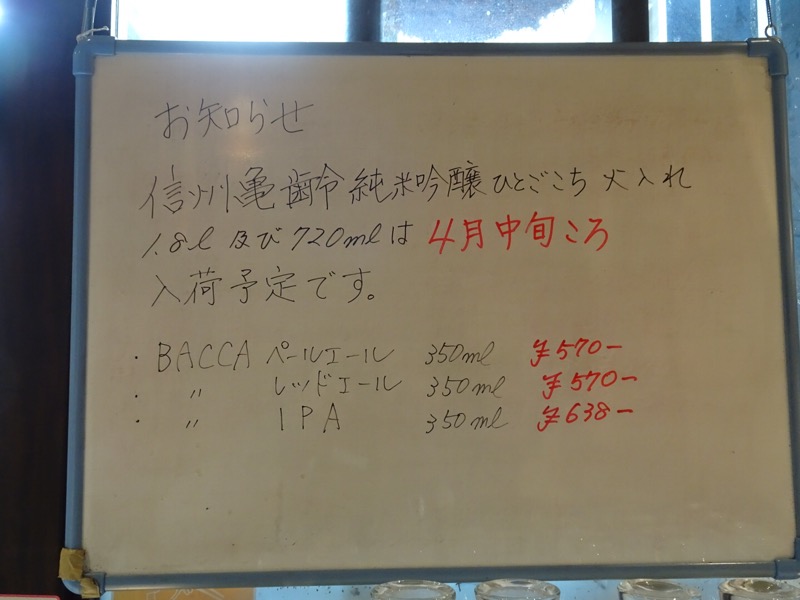 お知らせ
信州亀齢 純米吟醸 ひとごこち 火入れ
1.8l 及び 720mlは 4月中旬ころ
入荷予定です。
・BACCA ペールエール 350ml ¥570-
・〃 レッドエール 350ml ¥570-
・〃 IPA 350ml ¥638-